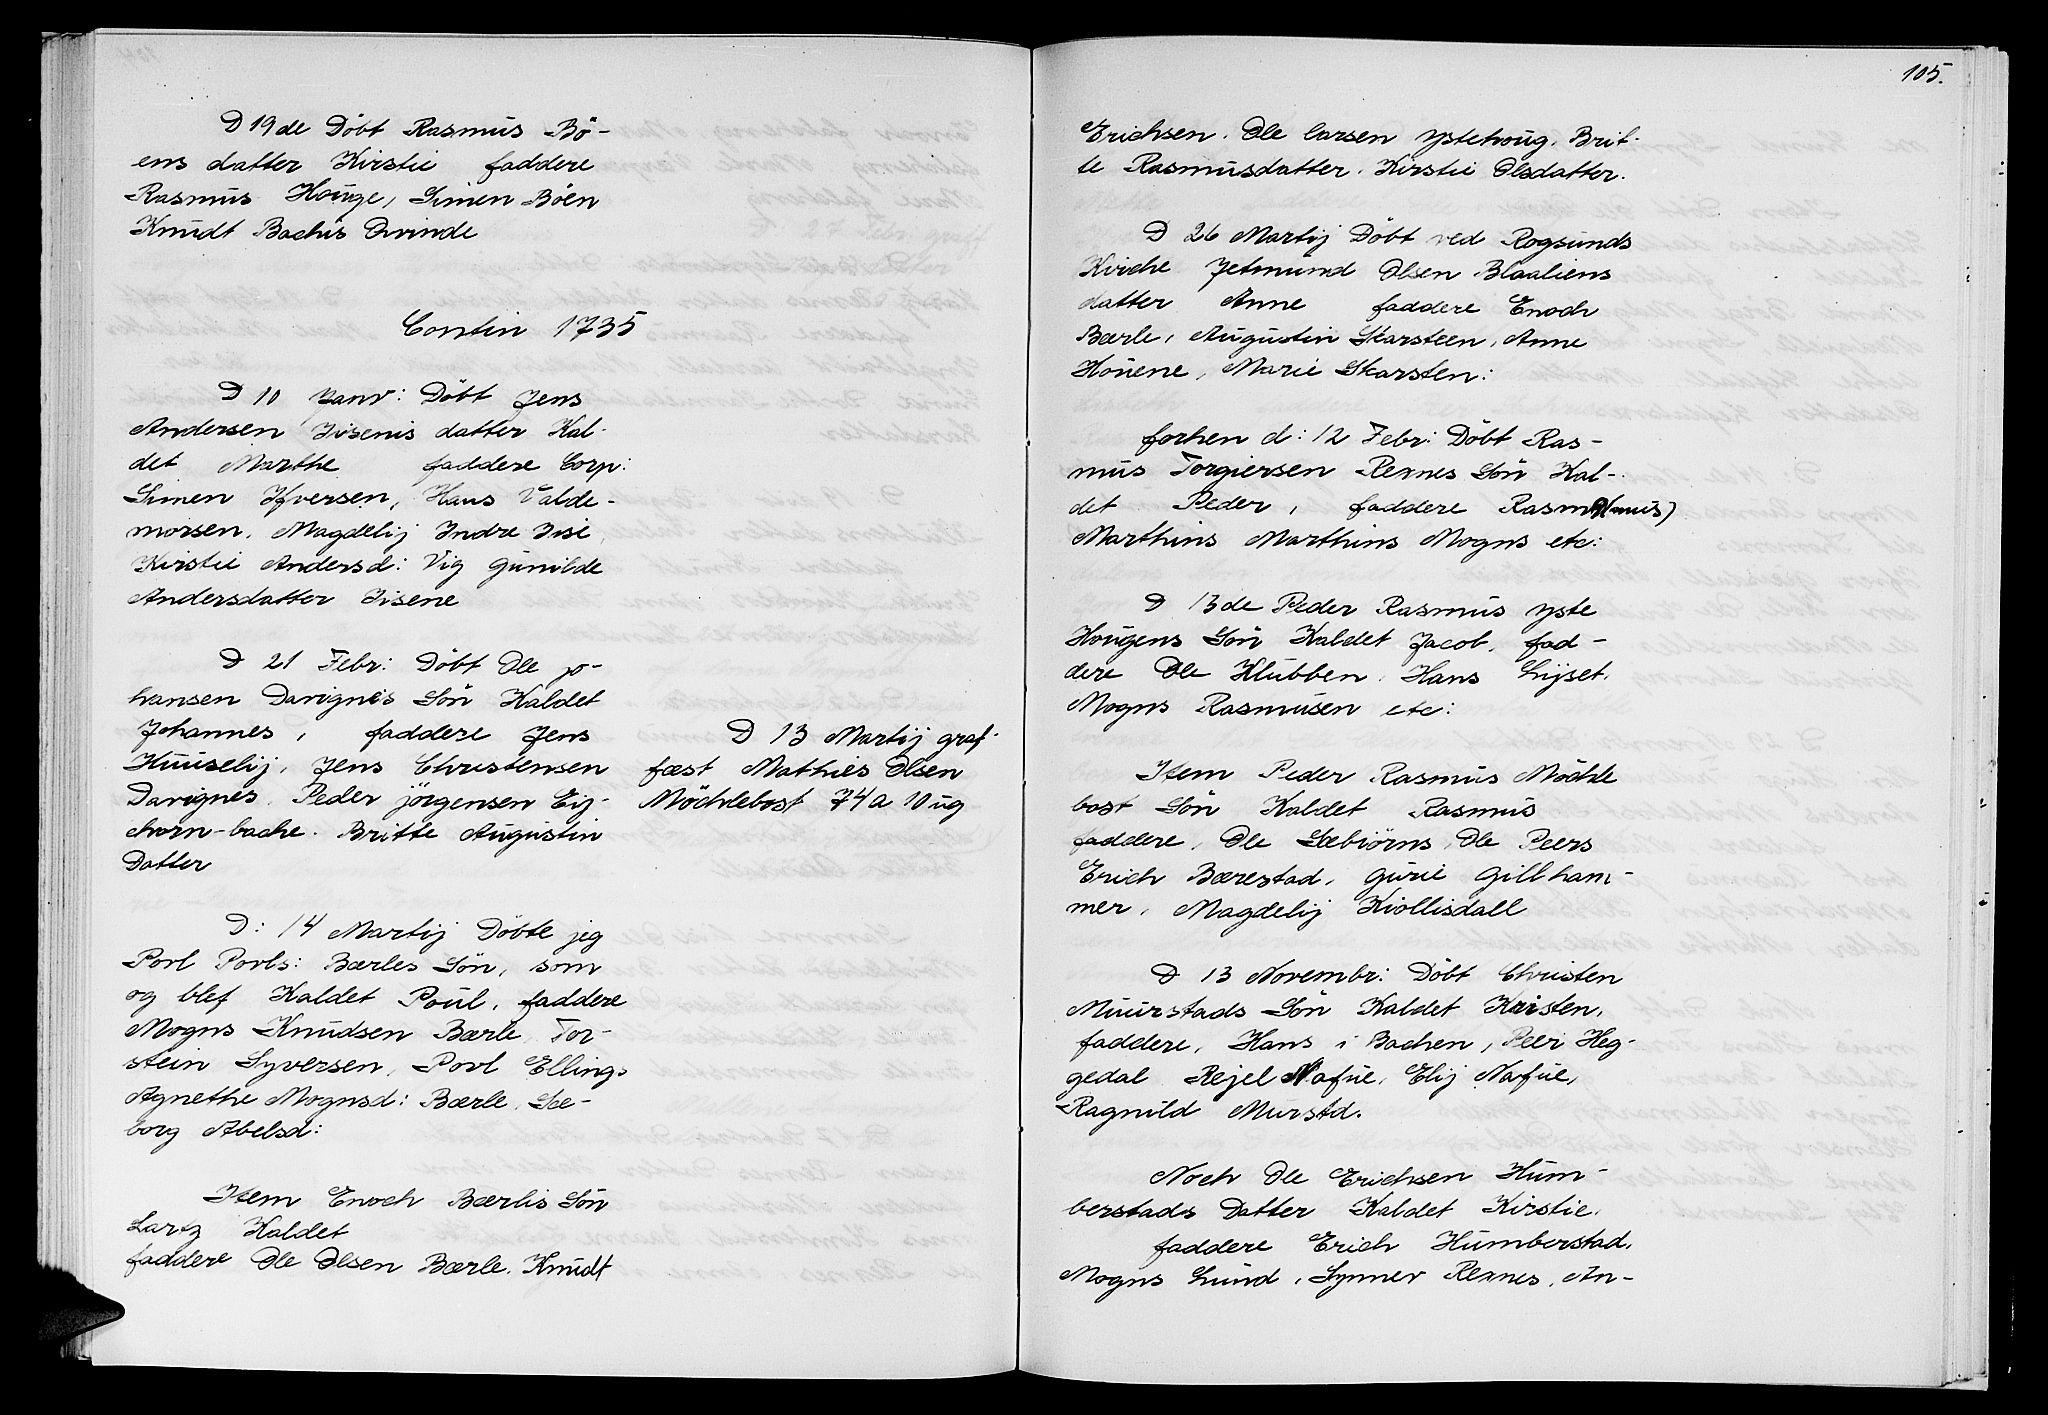 D 19de Döbt Rasmus Bö-
ens datter Kirstie faddere
Rasmus Houge, Simen Böen
Knudt Bachis Qvinde
Contin 1735
D 10 Janv: Döbt Jens
Andersen Jisenis datter Kal-
det Marthe faddere Corp:
Simen Ifversen, Hans Valde-
morsen, Magdelij Indre Jise,
Kirstie Andersd: Vig gunilde
Andersdatter Jisene
D 21 Febr: Döbt Ole jo-
hansen Davignes Sön Kaldet
Johannes, faddere Jens
Huuselij, Jens Christensen
Davignes, Peder jörgensen Eij-
chorn-bache. Britte Augustin
Datter
D 13 Martij graf-
fæst Mathies Olsen
Möchlebost 74 a 10 ug
D: 14 Martij Döbte jeg
Povl Povls: Bærles Sön, som
og blef Kaldet Poul, faddere
Mogns Knudsen Bærle, Tor-
stein Syversen, Povl Ellings
Agnethe Mognsd: Bærle, Sæ-
borg Abelsd:
Item Enoch Bærlis Sön
Lartz Kaldet
faddere Ole Olsen Bærle. Knudt
105.
Erichsen. Ole larsen ystehoug. Brit-
te Rasmusdatter. Kirstie Olsdatter.
D 26 Martij Döbt ved Rogsunds
Kirche Jetmund Olsen Blaaliens
datter Anne faddere Enoch
Bærle, Augustin Skarsteen, Anne
Houene, Marie Skarsten:
forhen d: 12 Febr: Döbt Ras-
mus Torgiersen Rexnes Sön Kal-
det Peder, faddere Rasm(mus)
Marthins Marthins Mogns etc:
D 13de Peder Rasmus yste
Hougens Sön Kaldet Jacob, fad-
dere Ole Klubben. Hans Lijset.
Mogns Rasmusen etc:
Item Peder Rasmus Möchle
bost Sön Kaldet Rasmus
faddere, Ole Sæbiörns, Ole Peers
Erich Bærestad, gurie gillham-
mer, Magdelij Kiöllisdall
D 13 Novembr: Döbt Christen
Muurstads Sön Kaldet Kristen,
faddere, Hans i Bachen, Peer Heg-
gedal Rejel Nafue, Elij Nafue,
Ragnild Murstd.
Noch Ole Erichsen Hum-
berstads Datter Kaldet Kirstie.
faddere Erich Humberstad.
Mogns Lund, Synner Rexnes, An-